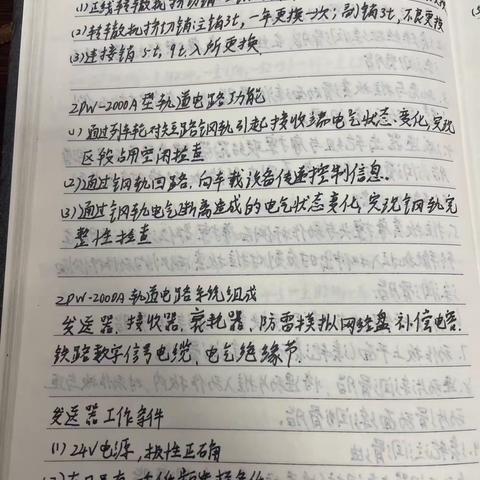 (2)转辙机挤切销:主销3t,一年更换一次;副销3t,不良更换
(3)连接销 5t, 9t,入所更换
ZPW-2000A型轨道电路功能
(1)通过列车轮对短路钢轨引起接收端电气状态变化,实现
区段占用空闲检查
(2)通过钢轨回路,向车载设备传递控制信息.
(3)通过钢轨电气断离造成的电气状态变化,实现钢轨完
整性检查
ZPW-2000A轨道电路系统组成
发送器,接收器,衰耗器,防雷模拟网络盘,补偿电容.
铁路数字信号电缆,电气绝缘节
发送器工作条件
(1) 24V电源,极性正确